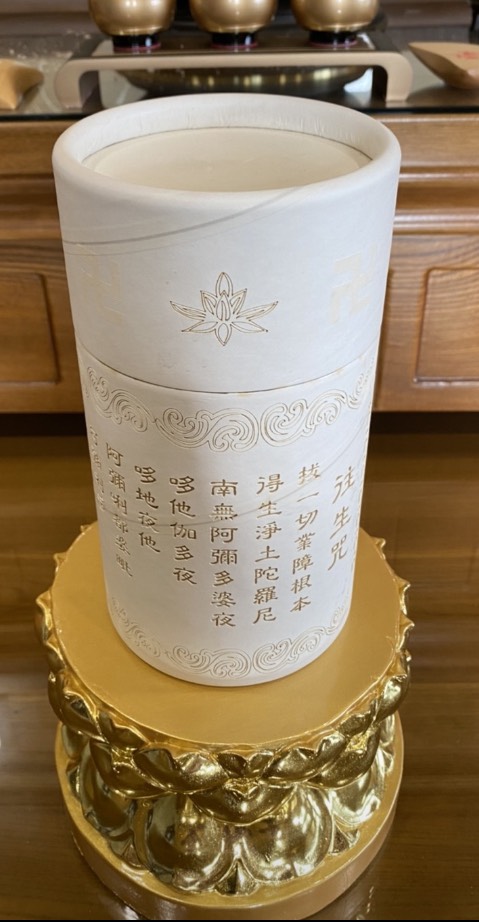 往生咒
拔一切業障根本
得生淨土陀羅尼
南無阿彌多婆夜
哆他伽多夜
哆地夜他
阿彌利都婆毗